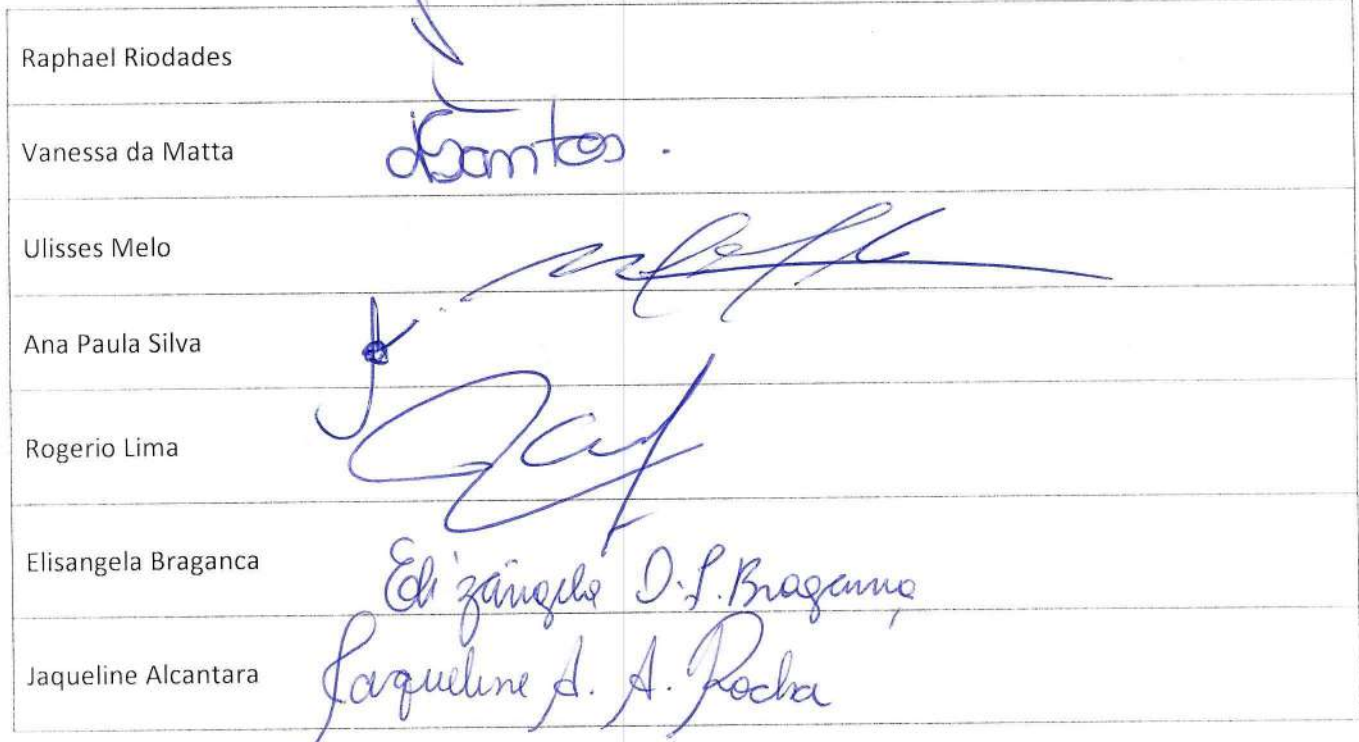 Raphael Riodades
Vanessa da Matta
Santos.
Ulisses Melo
Ana Paula Silva
Rogerio Lima
Elisangela Braganca
Elizângela D. S. Bragança
Jaqueline Alcantara
Jaqueline A. A. Rocha